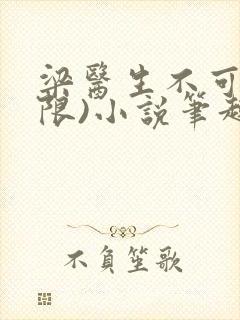 梁醫生不可
限)小說筆趣
不負笙歌